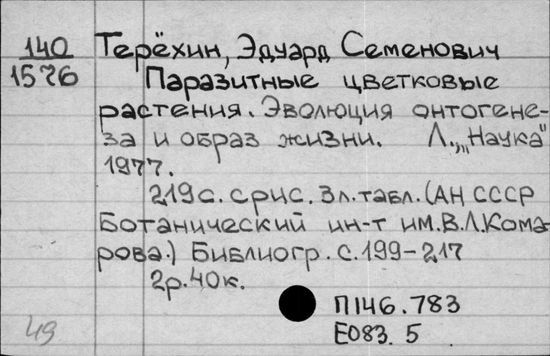 140
1576
Терёхин, Эдуард Семенович
Паразитные цветковые
растения. Эволюция онтогене-
за и образ жизни. Л., „Наука"
1977.
219с. с рис. 3л. табл. (АН СССР
Ботанический ин-т им. В.Л. Кома
рова.) Библиогр. с. 199-217
2р. 40к.
П146.783
Е083. 5
49